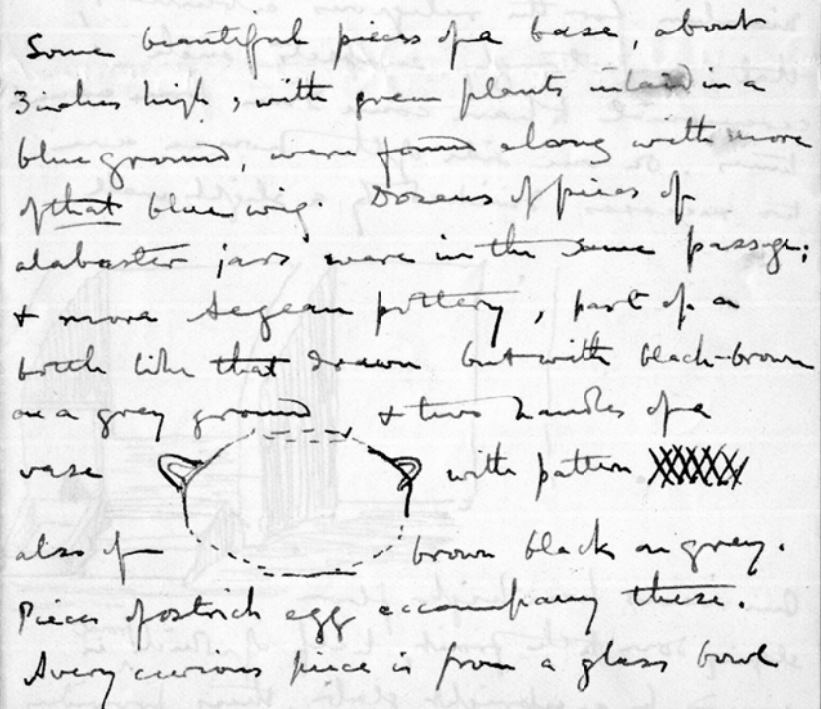 Some beautiful pieces of a base, about
3 inches high, with green plants inlaid in a
blue ground, were found along with more
of that blue wig. Dozens of pieces of
alabaster jars were in the same passage;
& more Aegean pottery, part of a
bottle like that drawn but with black-brown
on a grey ground & two handles of a
vase with pattern
also of brown black on grey.
Pieces of ostrich egg accompany these.
A very curious piece is from a glass bowl